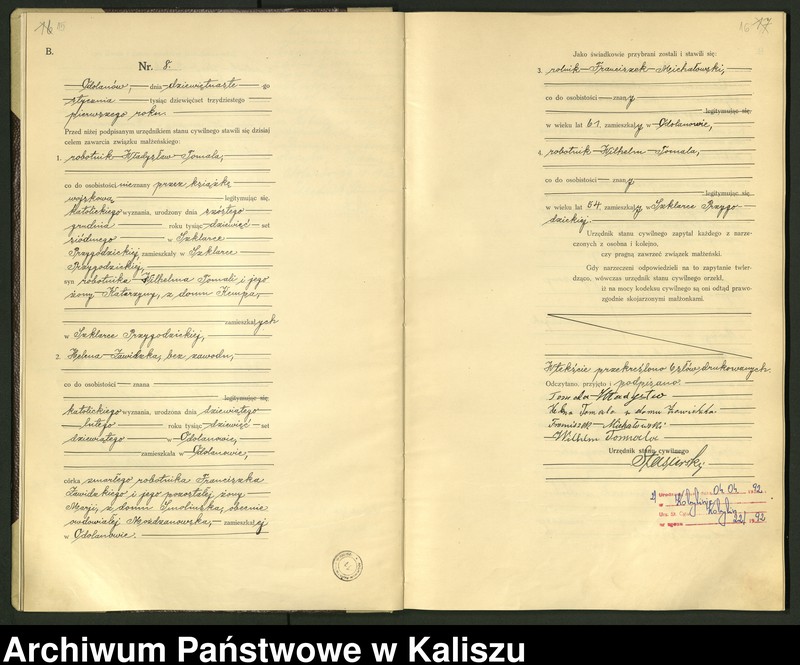 16
B.
Nr. 8.
Odolanów, dnia dziewiętnaste go
stycznia tysiąc dziewięćset trzydziestego
pierwszego roku
Przed niżej podpisanym urzędnikiem stanu cywilnego stawili się dzisiaj
celem zawarcia związku małżeńskiego:
1. robotnik Władysław Tomala,
co do osobistości nieznany przez książkę
wojskową legitymując się,
katolickiego wyznania, urodzony dnia szóstego
grudnia roku tysiąc dziewięć set
siódmego w Szklarce
Przygodzickiej, zamieszkały w Szklarce
Przygodzickiej,
syn robotnika Wilhelma Tomali i jego
żony Katarzyny, z domu Kempa,
zamieszkałych
w Szklarce Przygodzickiej,
2. Helena Zawidzka, bez zawodu,
co do osobistości znana
legitymując się,
katolickiego wyznania, urodzona dnia dziewiątego
lutego roku tysiąc dziewięć set
dziewiątego w Odolanowie,
zamieszkała w Odolanowie,
córka zmarłego robotnika Franciszka
Zawidzkiego i jego pozostałej żony
Marji, z domu Smolińska, obecnie
owdowiałej Mozdzanowska, zamieszkałej
w Odolanowie.
16 17
Jako świadkowie przybrani zostali i stawili się:
3. rolnik Franciszek Michałowski,
co do osobistości znany
legitymując się,
w wieku lat 61 zamieszkały w Odolanowie,
4. robotnik Wilhelm Tomala,
co do osobistości znany
legitymując się,
w wieku lat 54 zamieszkały w Szklarce Przygo-
dzickiej.
Urzędnik stanu cywilnego zapytał każdego z narze-
czonych z osobna i kolejno,
czy pragną zawrzeć związek małżeński.
Gdy narzeczeni odpowiedzieli na to zapytanie twier-
dząco, wówczas urzędnik stanu cywilnego orzekł,
iż na mocy kodeksu cywilnego są oni odtąd prawo-
zgodnie skojarzonymi małżonkami.
W tekście przekreślono 6 słów drukowanych.
Odczytano, przyjęto i podpisano.
Tomala Władysław
Helena Tomala z domu Zawidzka
Franciszek Michałowski
Wilhelm Tomala
Urzędnik stanu cywilnego
dnia 04.04. 1992
w Kobylinie
Urz. St. Cyw. Kobylin
22/1992
Archiwum Państwowe w Kaliszu